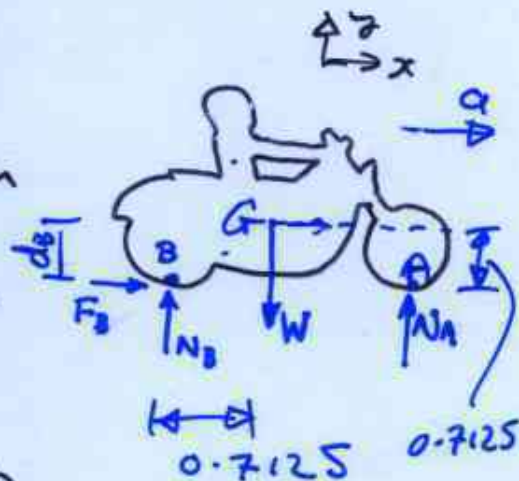 y
x
a
G
d_B
B
A
F_B
N_B
W
N_A
0.7125
0.7125